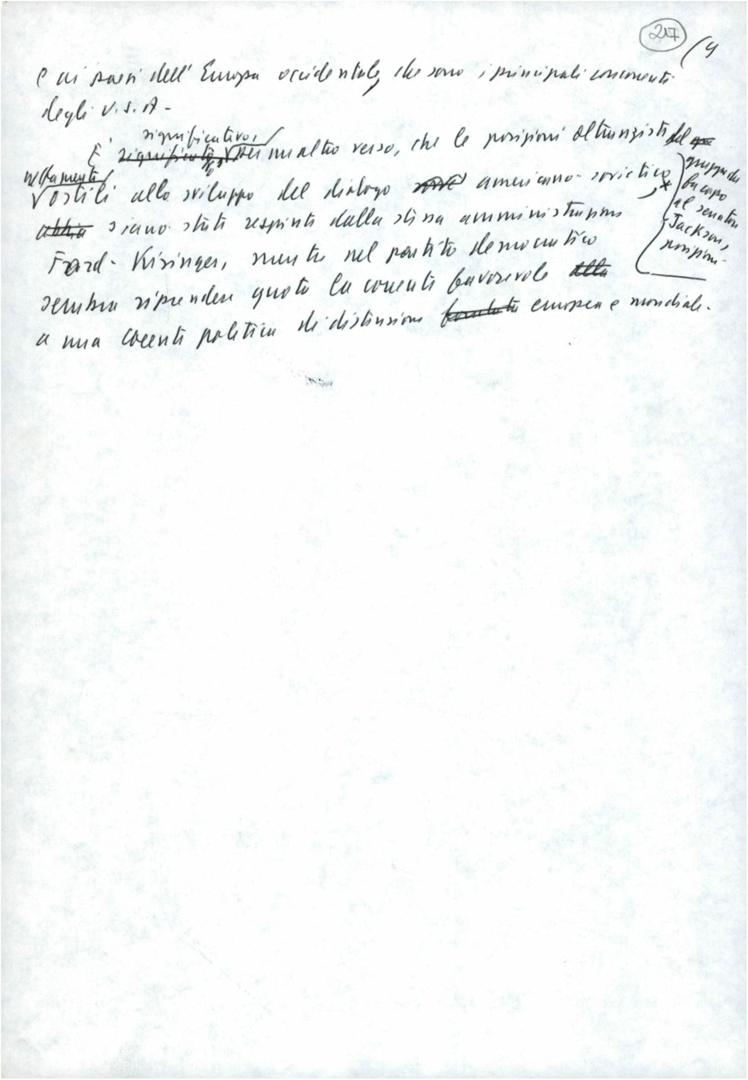 217
(4
e ai paesi dell'Europa occidentale, che sono i principali concorrenti
degli U.S.A.
È significativo, per un altro verso, che le posizioni oltranziste del
gruppo che
fa capo
al senatore
Jackson,
posizioni
nettamente
ostili allo sviluppo del dialogo americano-sovietico,
siano state respinte dalla stessa amministrazione
Ford-Kissinger, mentre nel partito democratico
sembra riprendere quota la corrente favorevole
a una coerente politica di distensione europea e mondiale.